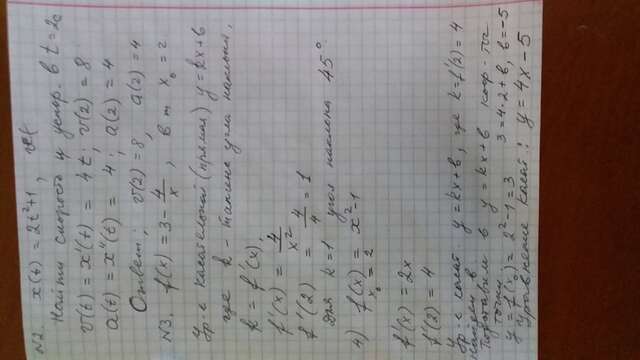 №2. x(t) = 2t²+1,
Найти скорость и ускор. в t = 2с
v(t) = x'(t) = 4t; v(2) = 8
a(t) = x''(t) = 4; a(2) = 4
Ответ; v(2)=8, a(2)=4
№3. f(x) = 3 - 4/x, в т x₀ = 2
Ур-е касательной (прямая) y = kx+в
где k - танг угла наклона,
k = f'(x),
f'(x) = 4/x²
f'(2) = 4/4 = 1
Для k=1 угол наклона 45°
4) f(x) = x²-1
x₀ = 2
f'(x) = 2x
f'(2) = 4
Ур-е касат. y = kx+в, где k=f'(2)=4
Найдем в
Подставим в y = kx+в коор-ты
точки 3=4·2+в, в=-5
y = f(x₀) = 2²-1 = 3
Уравнение касат: y = 4x-5